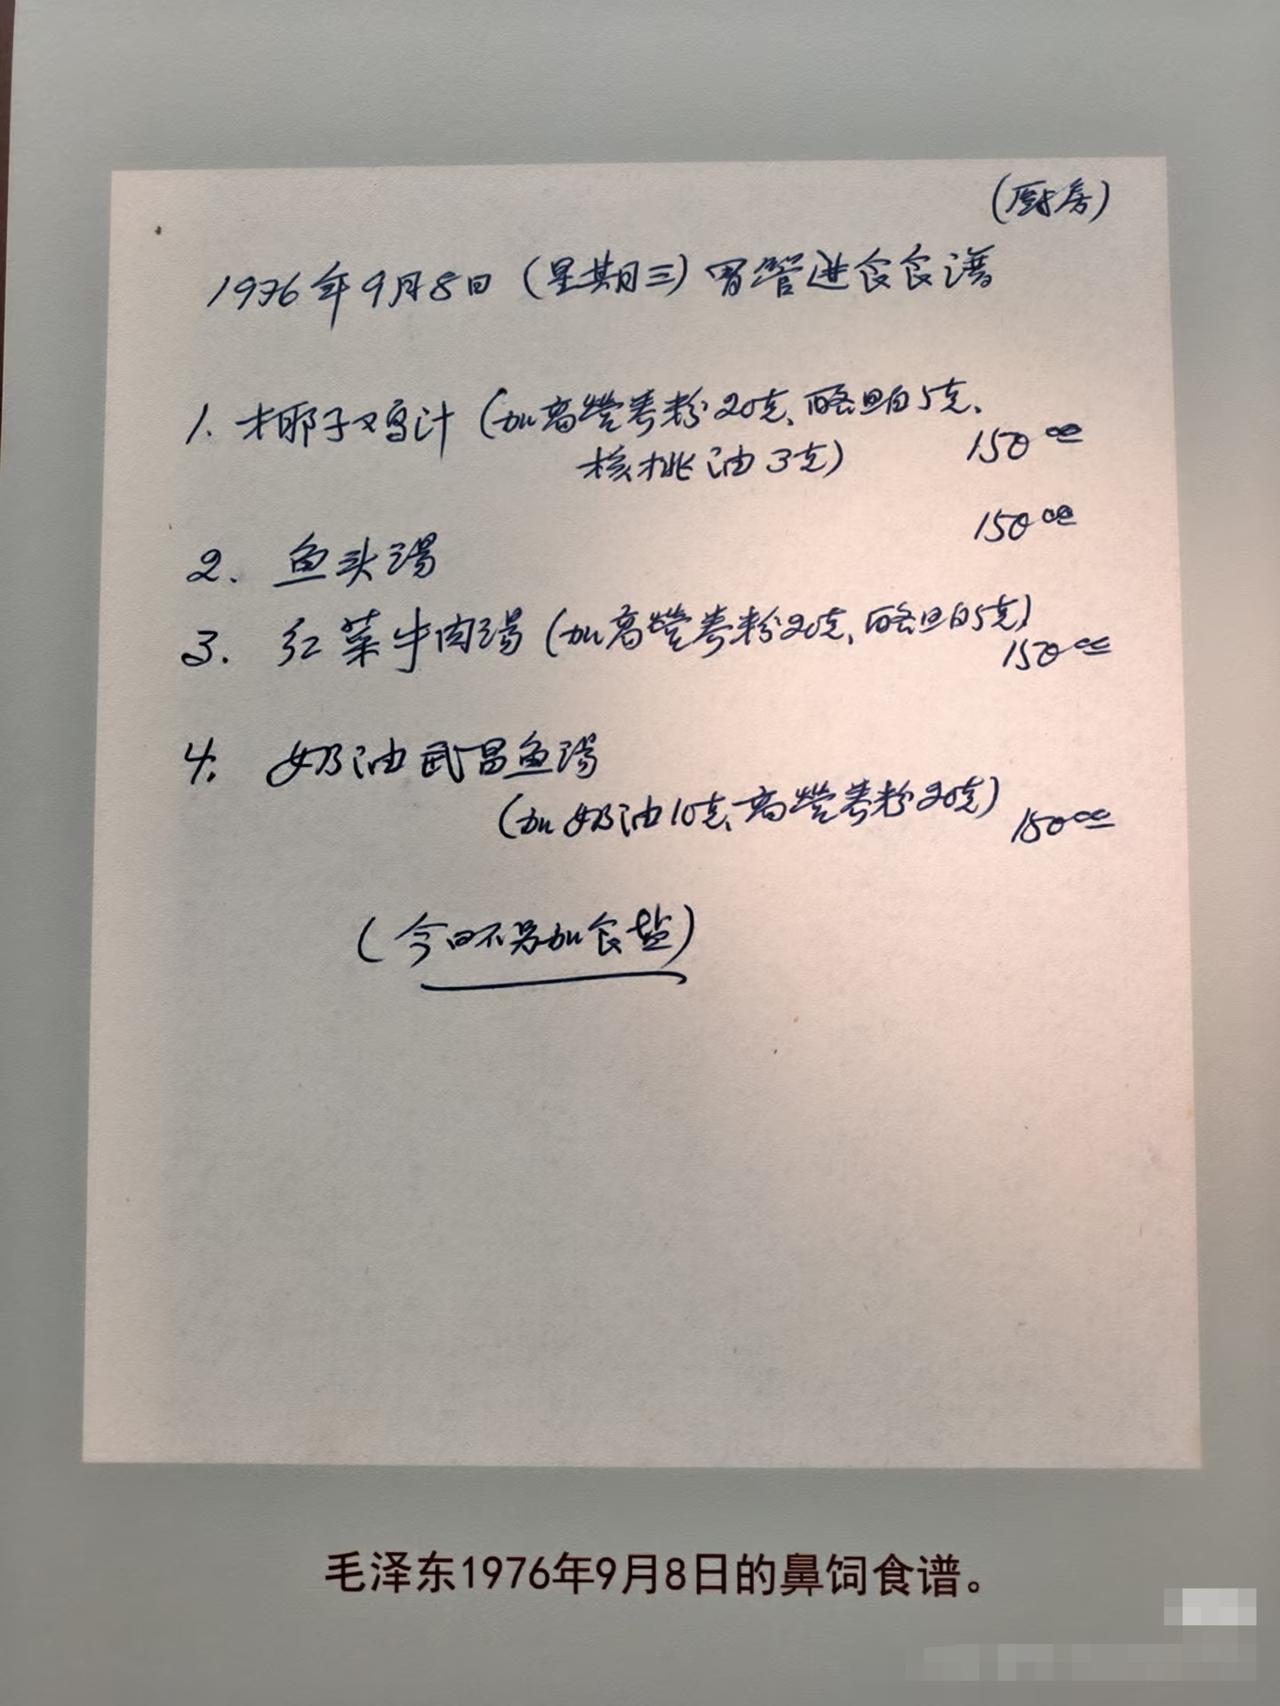 (厨房)
1976年9月8日（星期三）胃管进食食谱
1. 椰子鸡汁（加高营养粉20克、酪旦白5克、
核桃油3克） 150cc
2. 鱼头汤 150cc
3. 红菜牛肉汤（加高营养粉20克、酪旦白5克） 150cc
4. 奶油武昌鱼汤
（加奶油10克、高营养粉20克） 150cc
（今日不另加食盐）
毛泽东1976年9月8日的鼻饲食谱。